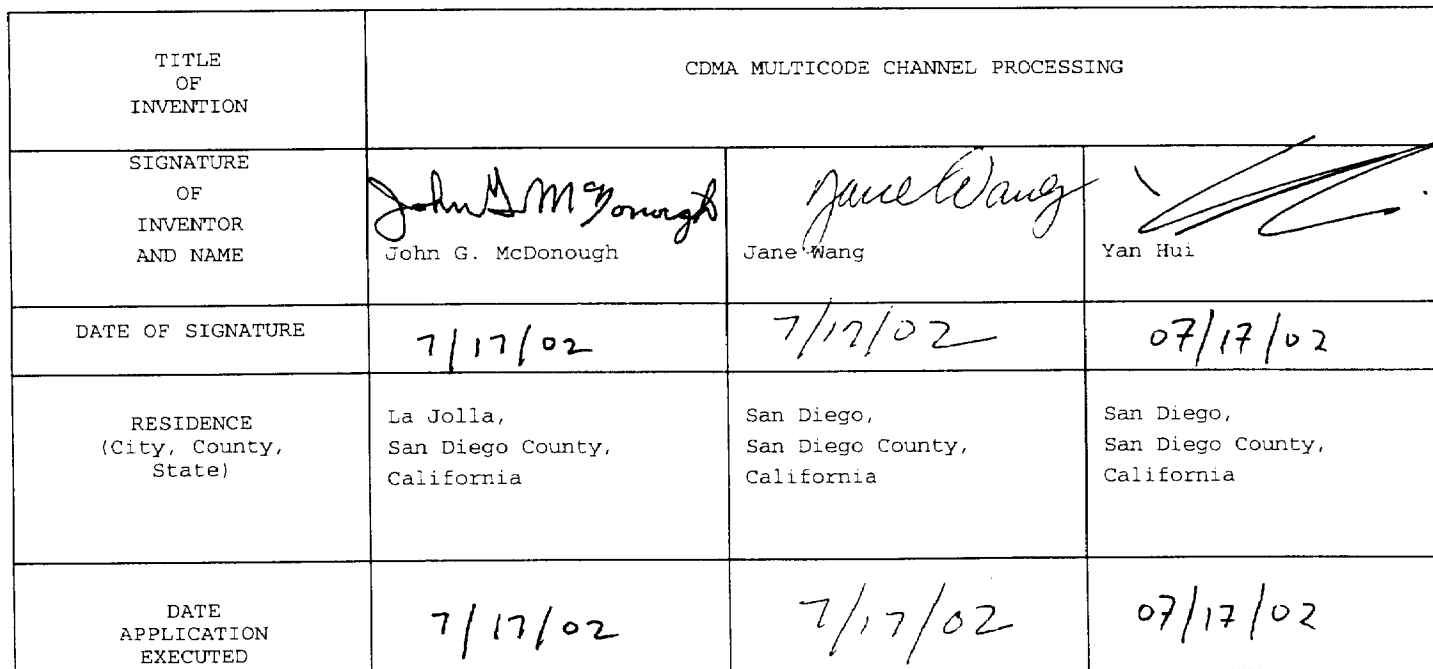 TITLE
OF
INVENTION
CDMA MULTICODE CHANNEL PROCESSING
SIGNATURE
OF
INVENTOR
AND NAME
John G McDonough
John G. McDonough
Jane Wang
Jane Wang
Yan Hui
DATE OF SIGNATURE
7/17/02
7/17/02
07/17/02
RESIDENCE
(City, County,
State)
La Jolla,
San Diego County,
California
San Diego,
San Diego County,
California
San Diego,
San Diego County,
California
DATE
APPLICATION
EXECUTED
7/17/02
7/17/02
07/17/02